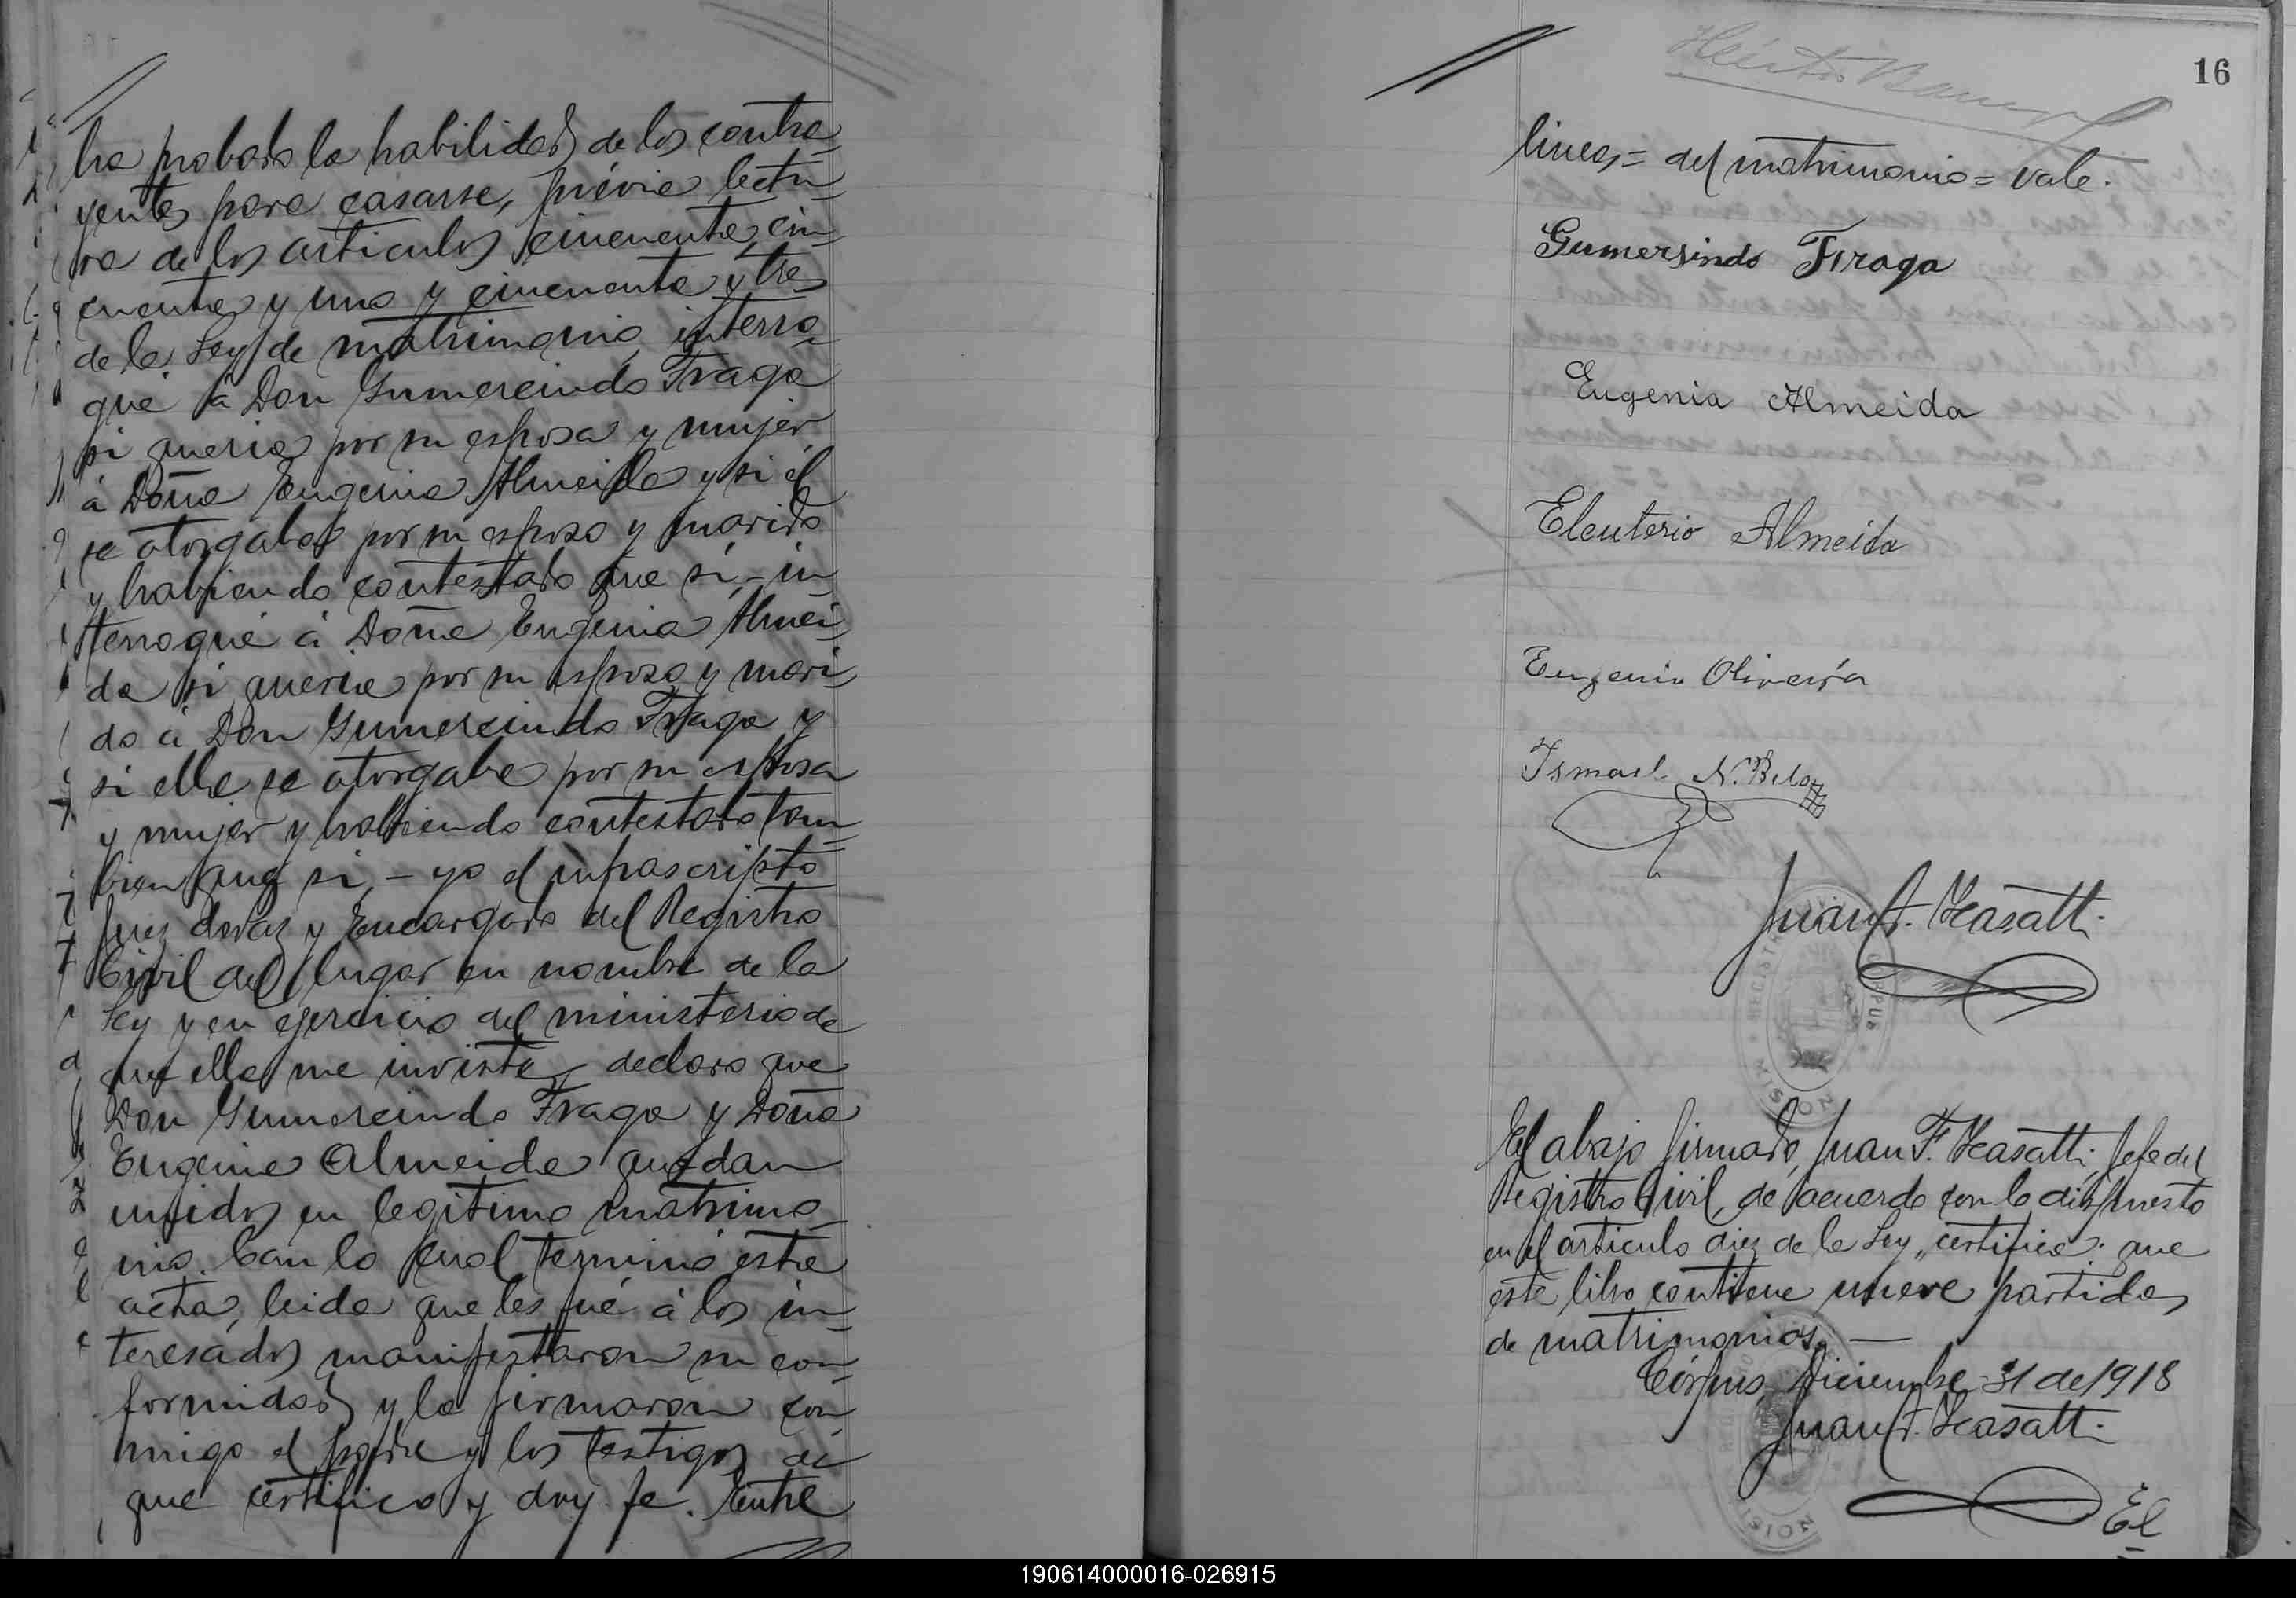 ha probado la habilidad de los contra-
yentes para casarse, prévia lectu-
ra de los articulos cincuenta, cin-
cuenta y uno y cincuenta y tres
de la Ley de matrimonio, interro-
gué á Don Gumercindo Fraga
si queria por su esposa y mujer
á Doña Eugenia Almeida y si él
se otorgaba por su esposo y marido
y habiendo contestado que sí,- in-
terrogué á Doña Eugenia Almei-
da si queria por su esposo y mari-
do á Don Gumercindo Fraga y
si ella se otorgaba por su esposa
y mujer y habiendo contestado tam-
bien que si,- yo el infrascripto
Juez de Paz y Encargado del Registro
Civil del lugar en nombre de la
Ley y en ejercicio del ministerio de
que ella me inviste, declaro que
Don Gumercindo Fraga y Doña
Eugenia Almeida quedan
unidos en legítimo matrimo-
nio. Con lo cual terminó esta
acta, leida que les fué á los in-
teresados manifestaron su con-
formidad y la firmaron con-
migo el padre y los testigos de
que certifico y doy fe. Entre
16
lineas = del matrimonio = vale.
Gumersindo Firaga
Eugenia Almeida
Eleuterio Almeida
Eugenio Oliveira
Ismael N.
Juan F. Kasatti
El abajo firmado, Juan F. Kasatti, Jefe del
Registro Civil, de acuerdo con lo dispuesto
en el articulo diez de la Ley, certifica: que
este libro contiene nueve partidas
de matrimonios. —
Córpus, Diciembre 31 de 1918
Juan F. Kasatti
El
190614000016-026915